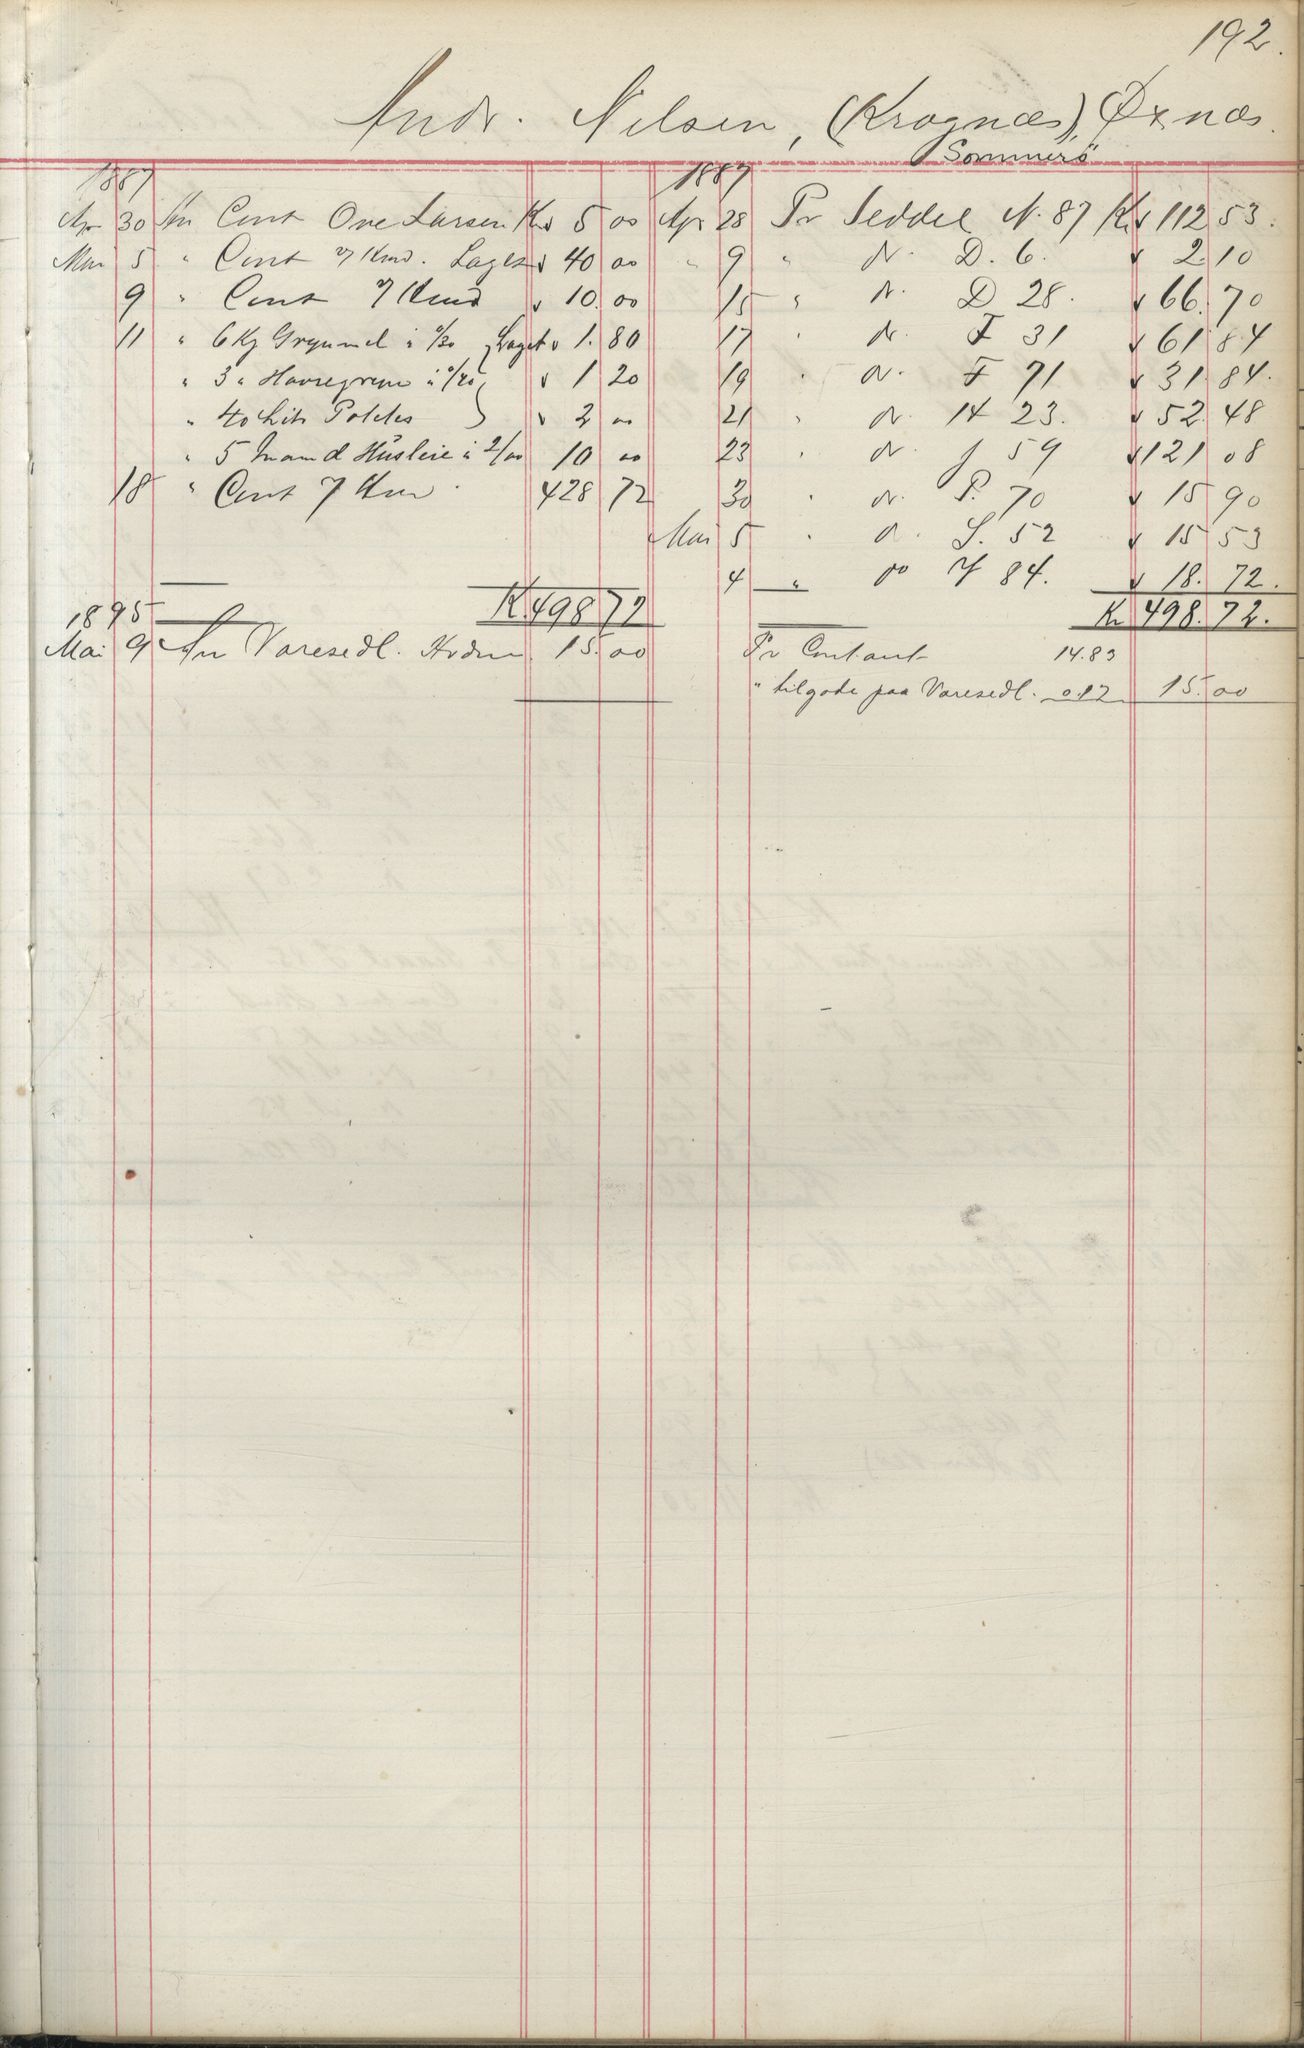 192.
Andr. Nilsen, (Krognæs), Øxnæs.
Sommerö
1887
Apr 30 An Cont Ove Larsen Kr 5 00
Mai 5 " Cont Lages 40 00
9 " Cont 10. 00
11 " 6 Kg Grynmel à 0/30 Laget 1. 80
" 3 " Havregryn à 0/40 1 20
" 40 Lit Potetes 2 00
" 5 Mand Husleie à 2/00 10 00
18 " Cont 428 72
K. 498 72
1895
Mai 9 An Varesedl. 15. 00
1887
Apr 28 Pr Seddel N. 87 Kr 112 53.
" 9 " D. 6. 2. 10
15 " D 28. 66. 70
17 " F 31 61 84
19 " F 71 31. 84.
21 " H 23. 52. 48
23 " J 59 121 08
30 " P. 70 15 90
Mai 5 " S. 52 15 53
4 " do 84. 18. 72.
Kr 498. 72.
Pr Contant 14.83
" tilgode paa Varesedl. 0.17 15. 00